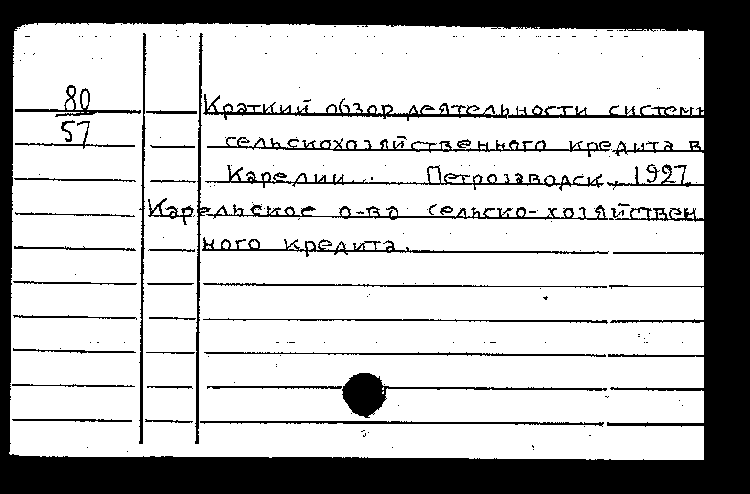 80
57
Краткий обзор деятельности систем
сельскохозяйственного кредита в
Карелии. Петрозаводск, 1927.
Карельское о-во сельско-хозяйствен
ного кредита.